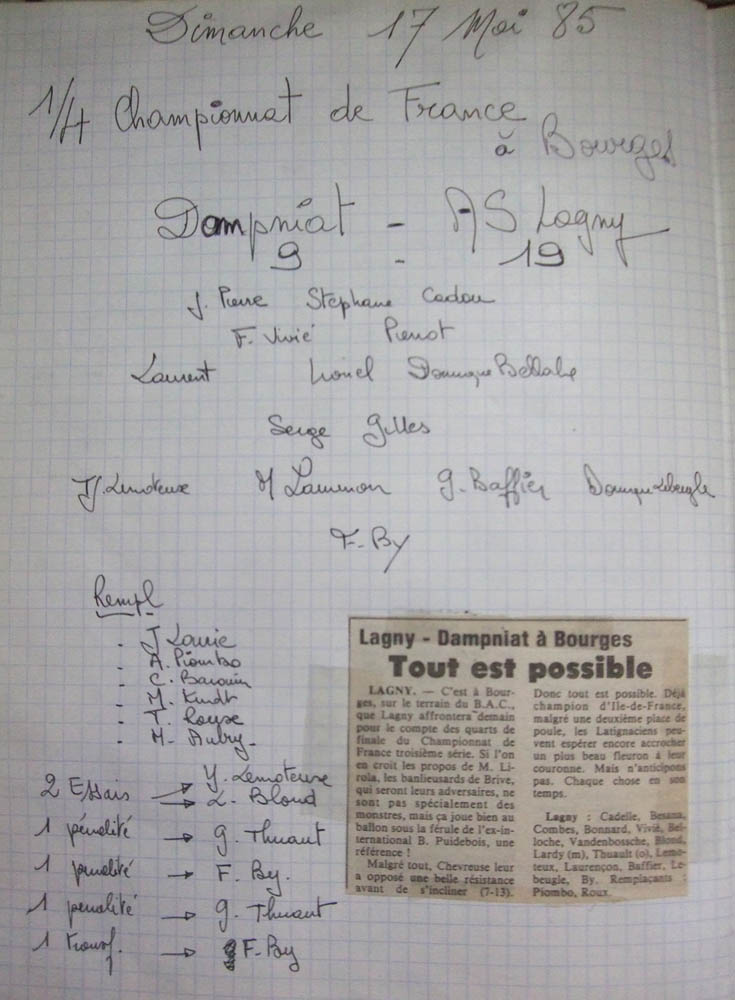 Dimanche 17 Mai 85
1/4 Championnat de France
à Bourges
Dampniat - AS Lagny
9 - 19
J. Pierre Stéphane Cadou
F. Vivié Pierrot
Laurent Lionel Dominique Belloche
Serge Gilles
M Laurencon G. Baffier Dominique Lebeugle
F. By
Rempl
- A. Piombo
- M. Aubry
2 Essais → Y. Lemoteuxe
→ L. Blond
1 pénalité → G. Thuaut
1 pénalité → F. By.
1 pénalité → G. Thuaut
1 transf. → F. By
Lagny - Dampniat à Bourges
Tout est possible
LAGNY. — C'est à Bour-
ges, sur le terrain du B.A.C.,
que Lagny affrontera demain
pour le compte des quarts de
finale du Championnat de
France troisième série. Si l'on
en croit les propos de M. Li-
rola, les banlieusards de Brive,
qui seront leurs adversaires, ne
sont pas spécialement des
monstres, mais ça joue bien au
ballon sous la férule de l'ex-in-
ternational B. Puidebois, une
référence !
Malgré tout, Chevreuse leur
a opposé une belle résistance
avant de s'incliner (7-13).
Donc tout est possible. Déjà
champion d'Ile-de-France,
malgré une deuxième place de
poule, les Latignaciens peu-
vent espérer encore accrocher
un plus beau fleuron à leur
couronne. Mais n'anticipons
pas. Chaque chose en son
temps.
Lagny : Cadelle, Besana,
Combes, Bonnard, Vivié, Bel-
loche, Vandenbossche, Blond,
Lardy (m), Thuault (o), Lemo-
teux, Laurençon, Baffier, Le-
beugle, By. Remplaçants :
Piombo, Roux.